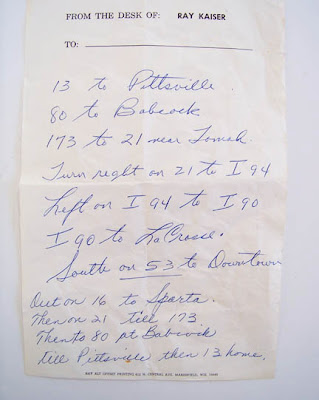 FROM THE DESK OF: RAY KAISER
TO:
13 to Pittsville.
80 to Babcock
173 to 21 near Tomah.
Turn reght on 21 to I 94
Left on I 94 to I 90
I 90 to LaCrosse.
South on 53 to Downtown
Out on 16 to Sparta.
Then on 21 till 173
Then to 80 at Babcock
till Pittsville then 13 home.